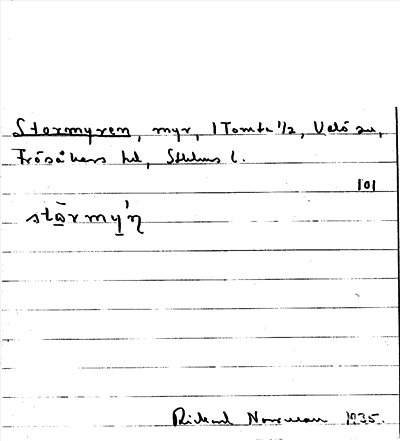 Stormyren, myr, 1 Tomta 1/2, Valö sn,
Frösåkers hd, Sthlms l.
101
stårmy'n
Rickard Norrman 1935.